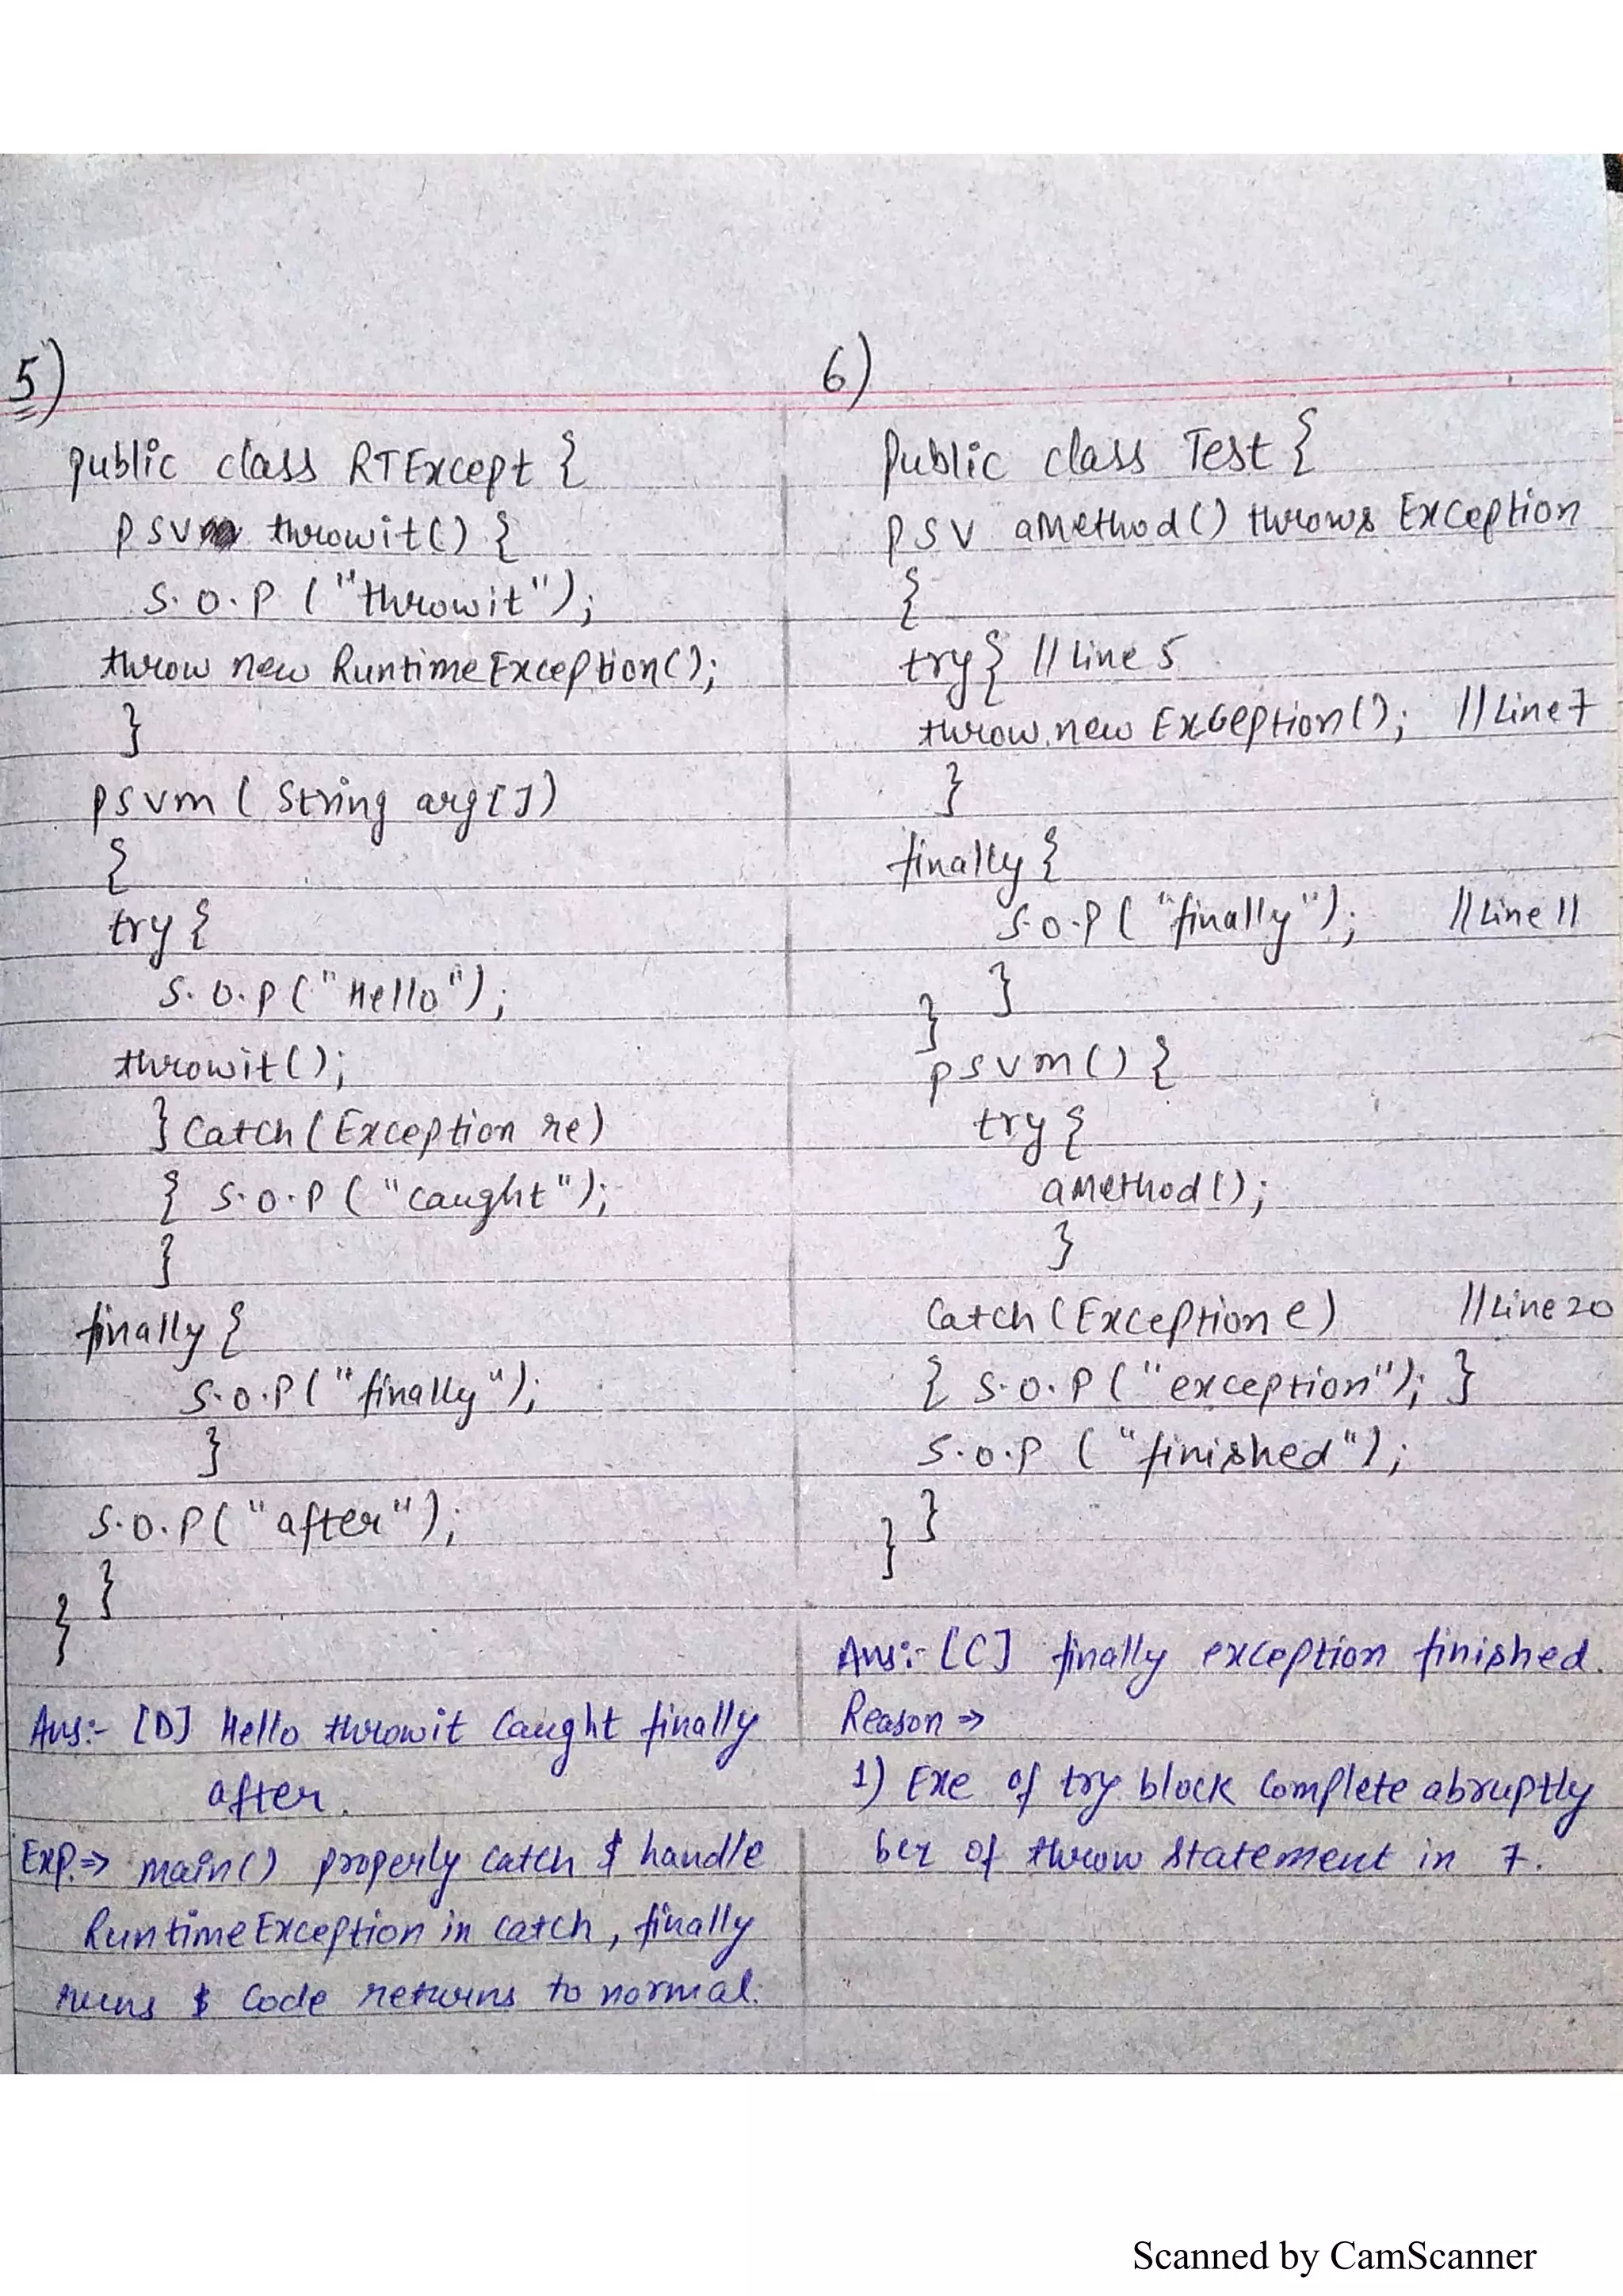 5)
public class RTExcept {
psv throwit() {
S.O.P ("throwit");
throw new RuntimeException();
}
psvm ( String arg[])
{
try {
S.O.P ("Hello");
throwit();
} Catch (Exception re)
{ S.O.P ("caught");
}
finally {
S.O.P ("finally");
}
S.O.P ("after");
}
}
Ans:- [D] Hello throwit Caught finally
after.
Exp.⇒ main() properly catch & handle
RuntimeException in catch, finally
runs & Code returns to normal.
6)
Public class Test {
PSV aMethod() throws Exception
{
try { // Line 5
throw new Exception(); // Line 7
}
finally {
S.O.P ( "finally"); // Line 11
}
}
psvm() {
try {
aMethod();
}
Catch (Exception e) // Line 20
{ S.O.P ("exception"); }
S.O.P ("finished");
}
}
Ans:- [C] finally exception finished.
Reason ⇒
1) Exe of try block Complete abruptly
bcz of throw statement in 7.
Scanned by CamScanner